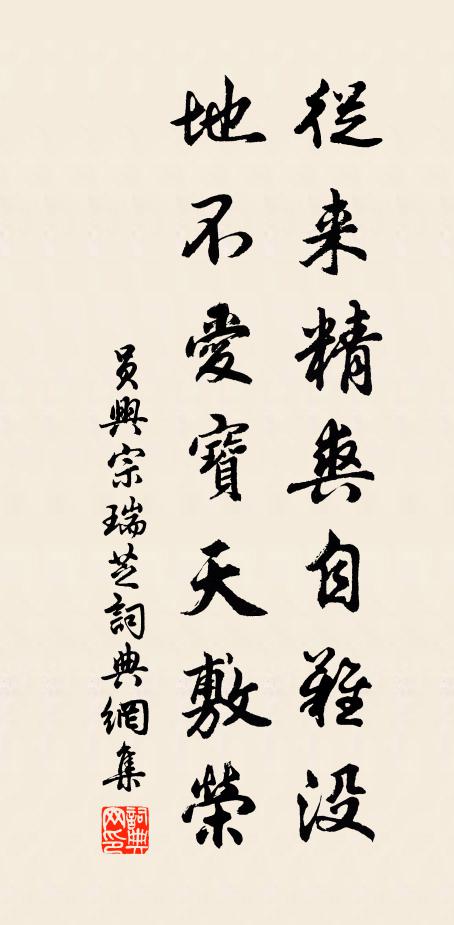 從来精爽自難没
地不愛寶天敷榮
員興宗瑞芝詞典網集
詞典網印